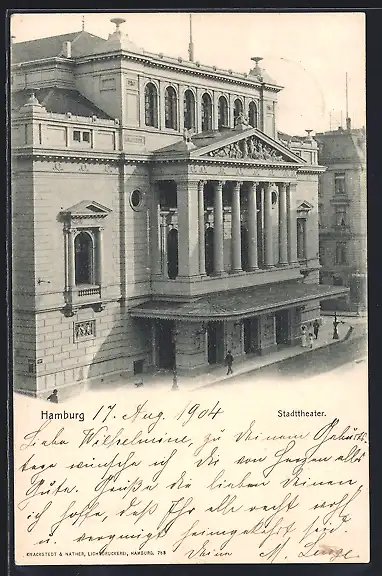 Hamburg 17. Aug. 1904 Stadttheater.
Liebe Wilhelmine, zu Deinem Geburts-
tage wünsche ich Dir von Herzen alles
Gute. Grüße die lieben Deinen,
ich hoffe, daß Ihr alle recht wohl
u. vergnügt heimgekehrt seid.
Deine M. Lange
KNACKSTEDT & NÄTHER, LICHTDRUCKEREI, HAMBURG.